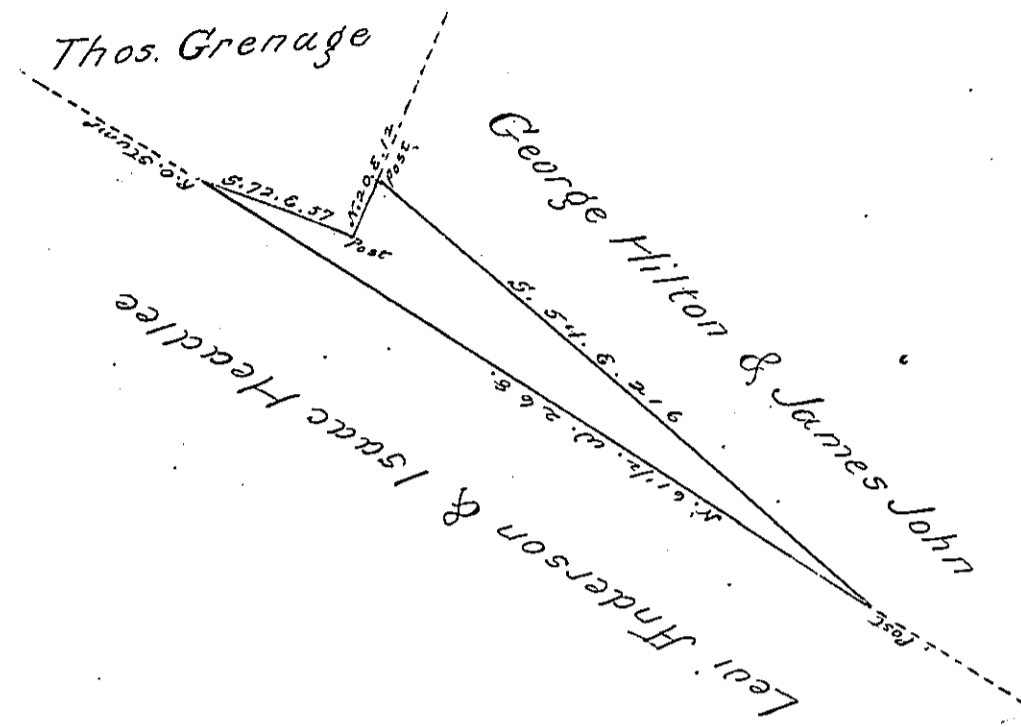 Thos. Grenage
R.O. Stump
S.72.E.57
Post
N.20.E.12
Post,
George Hilton & James John
S. 54. E. 216
N. 61 1/2. W. 268.
Post
Levi Anderson & Isaac Headlee